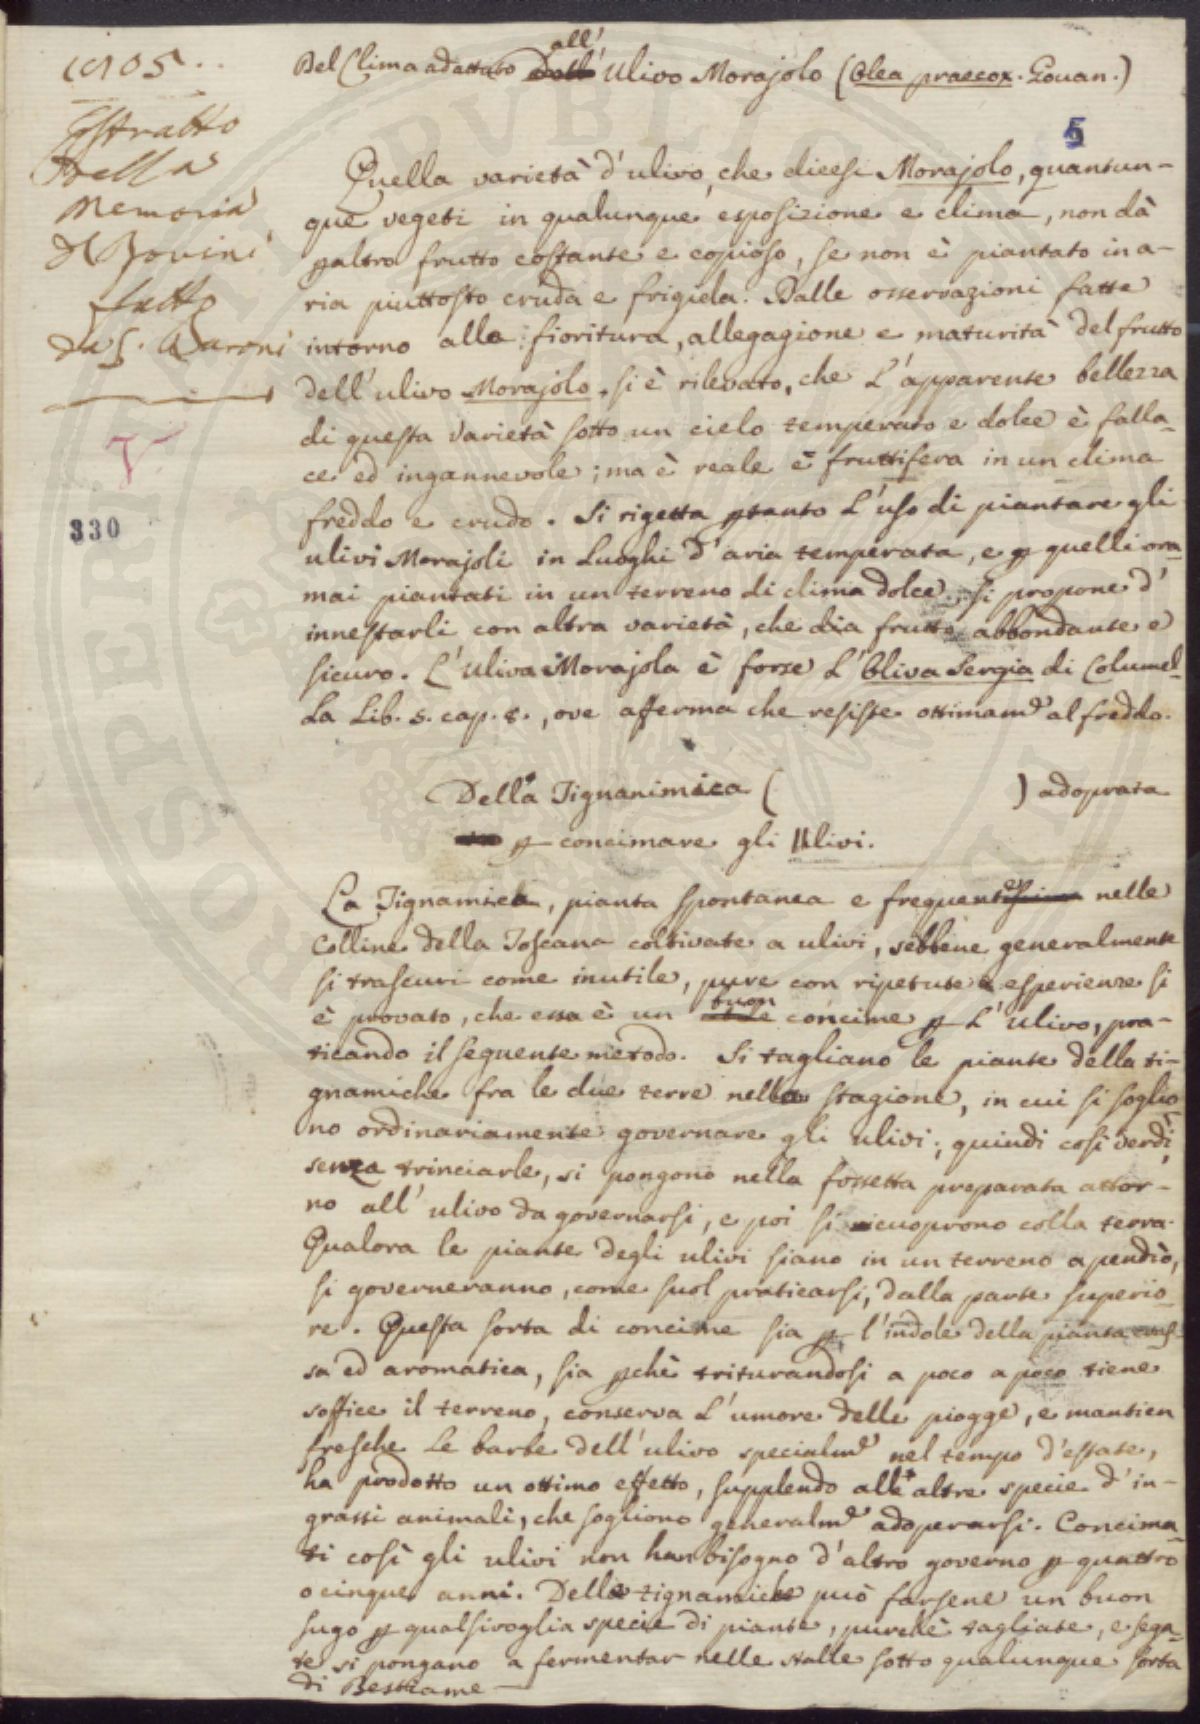 1805..
Estratto
della
Memoria
di Bovini
fatto
da S. Baroni
330
5
Del Clima adattato Dell' all' Ulivo Morajolo (Olea praecox. Gouan.)
Quella varietà d'ulivo, che dicesi Morajolo, quantun-
que vegeti in qualunque esposizione e clima, non dà
paltro frutto costante e copioso, se non è piantato in a-
ria piuttosto cruda e frigida. Dalle osservazioni fatte
intorno alla fioritura, allegagione e maturità del frutto
dell'ulivo Morajolo, si è rilevato, che l'apparente bellezza
di questa varietà sotto un cielo temperato e dolce è falla-
ce ed ingannevole; ma è reale e fruttifera in un clima
freddo e crudo. Si rigetta ptanto l'uso di piantare gli
ulivi Morajoli in Luoghi d'aria temperata, e p quelli ora-
mai piantati in un terreno di clima dolce, si propone d'
innestarli con altra varietà, che dia frutto abbondante e
sicuro. L'Uliva Morajola è forse l'Oliva Sergia di Columel-
la Lib. 5. cap. 8., ove afferma che resiste ottimamte al freddo.
Della Tignamica ( ) adoprata
p concimare gli Ulivi.
La Tignamica, pianta spontanea e frequente nelle
Colline della Toscana coltivate a ulivi, sebbene generalmente
si trascuri come inutile, pure con ripetute esperienze si
è provato, che essa è un buon concime p l'ulivo, pra-
ticando il seguente metodo. Si tagliano le piante della ti-
gnamiche fra le due terre nella stagione, in cui si soglio-
no ordinariamente governare gli ulivi; quindi così verdi,
senza trinciarle, si pongono nella fossetta preparata attor-
no all'ulivo da governarsi, e poi si ricuoprono colla terra.
Qualora le piante degli ulivi siano in un terreno a pendìo,
si governeranno, come suol praticarsi, dalla parte superio-
re. Questa sorta di concime sia p l'indole della pianta cras-
sa ed aromatica, sia pchè triturandosi a poco a poco tiene
soffice il terreno, conserva l'umore delle piogge, e mantien
fresche le barbe dell'ulivo specialmte nel tempo d'estate,
ha prodotto un ottimo effetto, supplendo alle altre specie d'in-
grassi animali, che sogliono generalmte adoperarsi. Concima-
ti così gli ulivi non han bisogno d'altro governo p quattro
o cinque anni. Delle tignamiche può farsene un buon
sugo p qualsivoglia specie di piante, purchè tagliate, e sega-
te si pongano a fermentar nelle stalle sotto qualunque sorta
di Bestiame